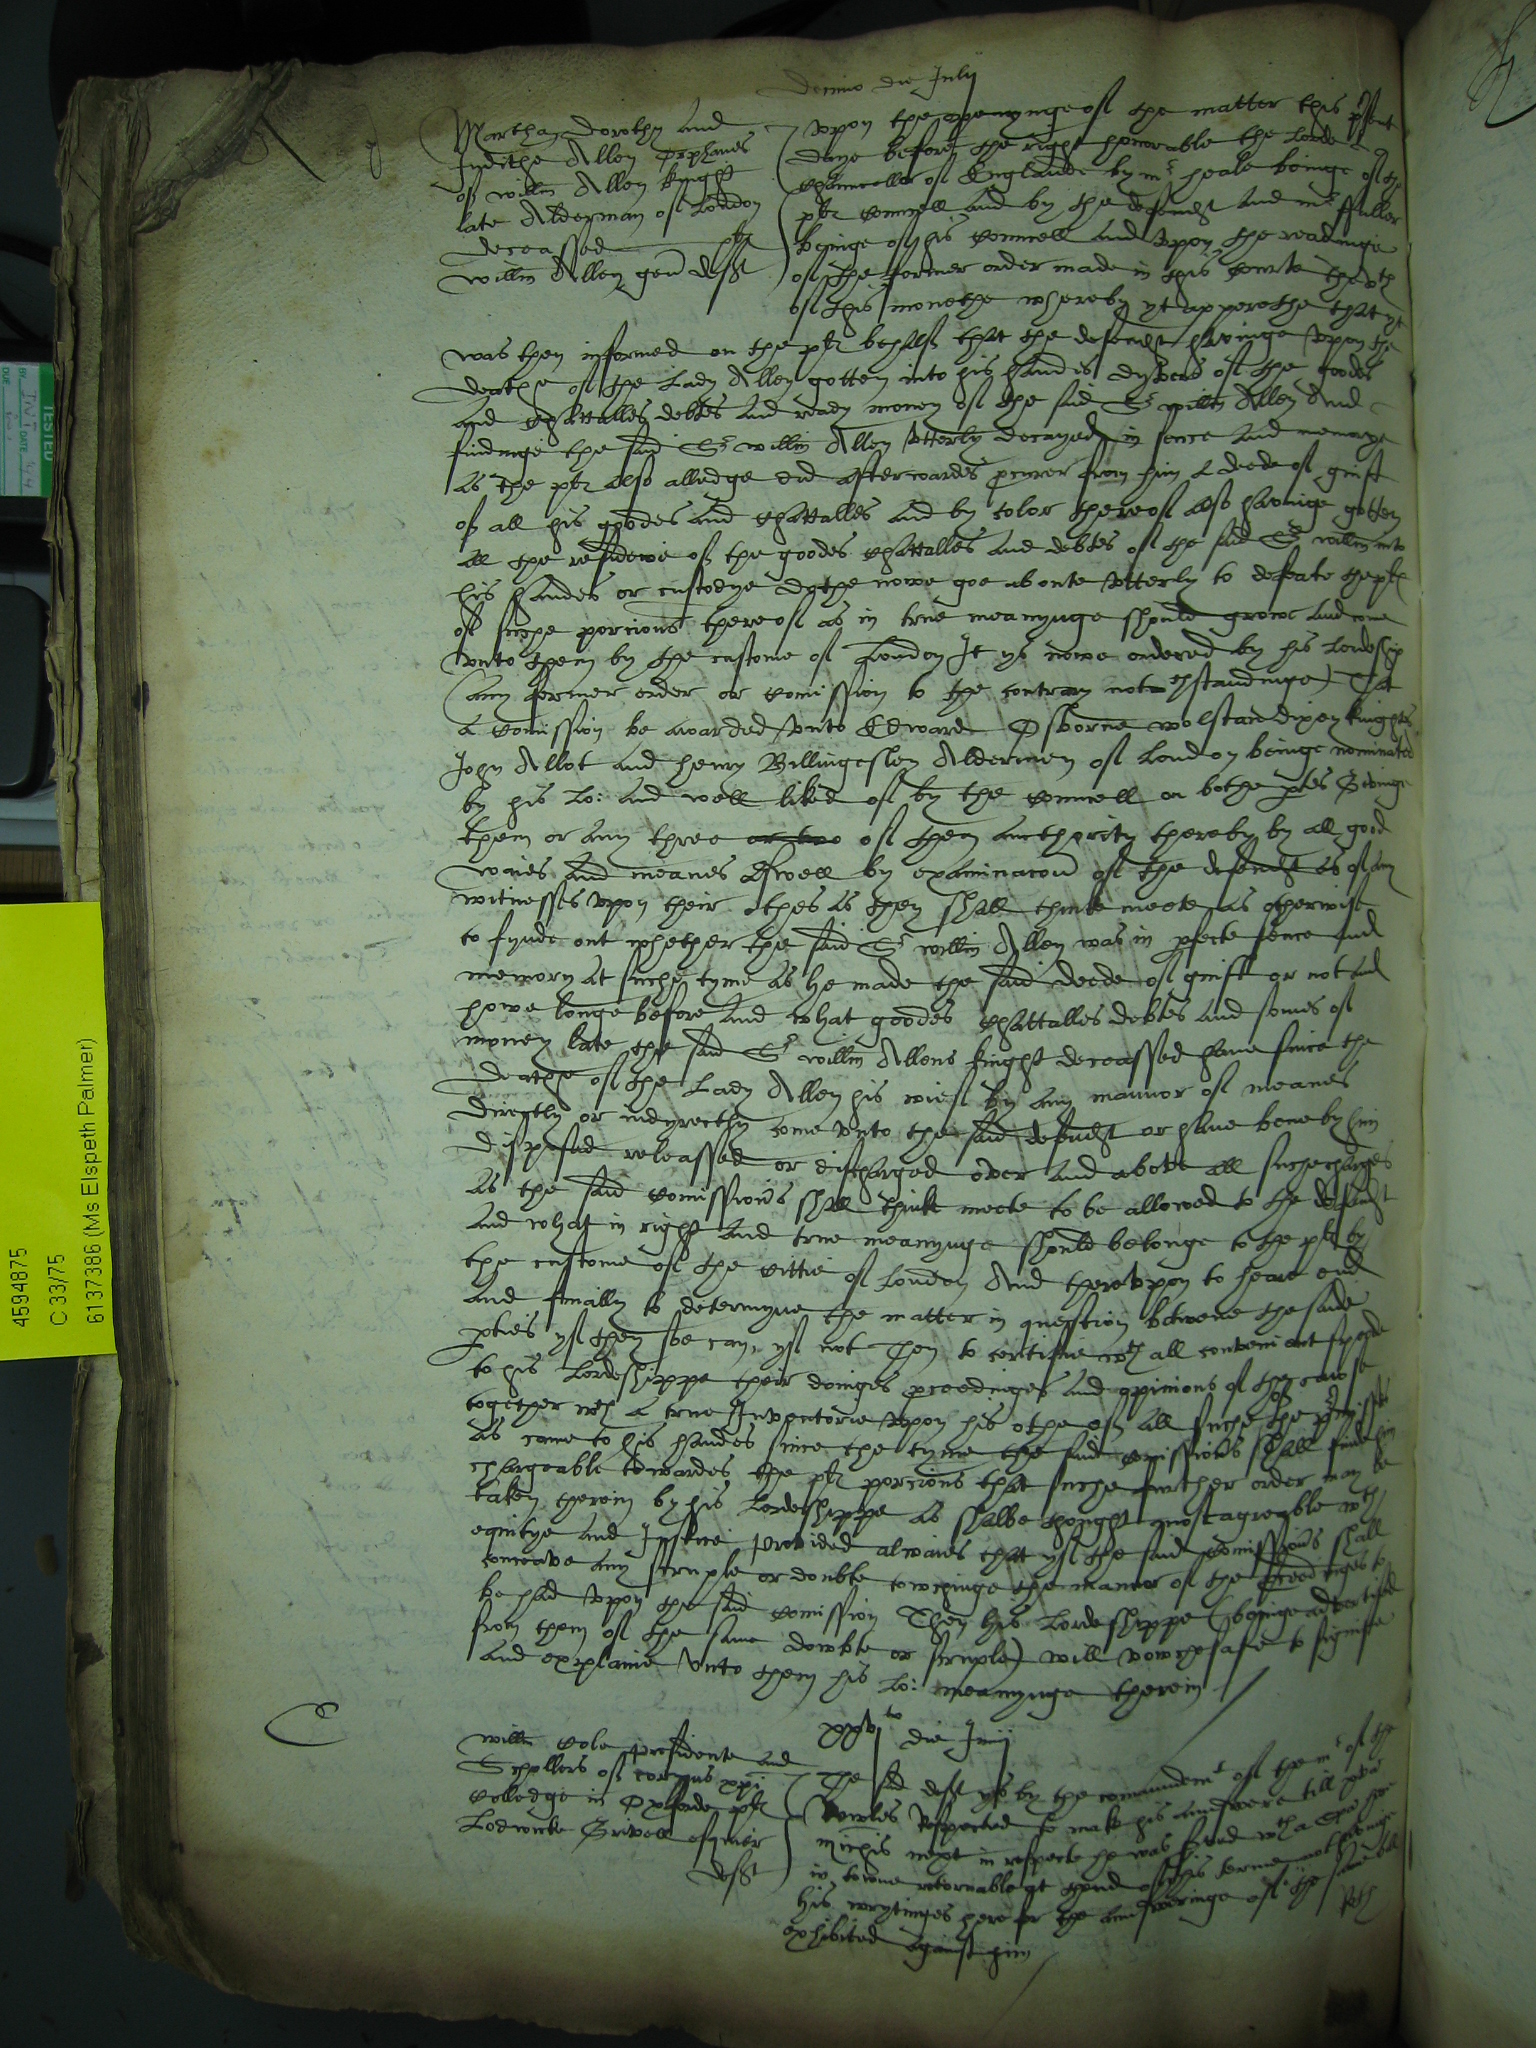 decimo die Julij
Martha dorothy and
Judithe Allen Orphanes
of willm Allen knight
late Alderman of London
deceassed plts
willm Allen gen deft
Upon the openynge of the matter this psent
daye before the right honorable the Lorde
Chauncellor of Englande by mr heale beinge of the
plts councell and by the defendt and mr ffuller
beinge of his councell and upon the readinge
of the former order made in this courte the vth
of this monethe whereby yt apperethe that yt
was then informed on the plts behalf that the defendt havinge upon the
deathe of the Lady Allen gotten into his handes dyvers of the goodes
and chattalles debtes and ready money of the said Sr willm Allen And
findinge the said Sr willm Allen utterly decayed in sence and memorye
as the plts also alledge did afterwardes pcurer from him a deede of guift
of all his goodes and chattalles and by color thereof also havinge gotten
all the residewe of the goodes chattalles and debtes of the said Sr willm into
his handes or custodye dothe nowe goe aboute utterly to defeate the plts
of suche porcions thereof as in true meanynge should growe and come
unto them by the custome of London It ys nowe ordered by his Lordeship
(any former order or comission to the contrary notwthstandinge) That
a comission be awarded unto Edwarde Osborne wolstan dixey knightes
John Allot and henry Billingesley Aldermen of London beinge nominated
by his Lo: and well liked of by the councell on bothe ptes Geving
them or any three or two of them aucthority thereby by all good
waies and meanes aswell by examinacon of the defendt as of any
witnesses upon their othes as they shall thinke meete as otherwise
to fynde out whether the said Sr willm Allen was in pfecte sence and
memory at suche tyme as he made the said deede of guift or not and
howe longe before And what goodes chattalles debtes and somes of
money late the said Sr willm Allens knight deceassed have since the
deathe of the Lady Allen his wief by any mannor of meanes
directly or indyrectly come unto the said defendt or have bene by him
disposed releassed or discharged over and above all suche charges
as the said comissioners shall thinke meete to be allowed to the defendt
and what in right and true meanynge should belonge to the plts by
the custome of the cittie of London And thereupon to heare end
and finally to determyne the matter in question betwene the saide
pties yf they soe can, yf not Then to certifie wth all convenient spede
to his Lordeshippe their doinges pceedinges and opinions of the cause
together wth a true Inventorie upon his othe of all suche the pmisses
as came to his handes since the tyme the said comissioners shall finde him
chargeable towardes the plts porcions that suche further order may be
taken therein by his Lordeshippe as shalbe thought most agreable wth
equitye and Justice Provided alwaies that yf the said comissioners shall
conceave any scruple or doubte towchinge the manner of the pceedinges to
be had upon the said comission Then his Lordeshippe (beinge advertised
from them of the same dowbte or scruple) will vowchesafe to signifie
and explaine unto them his Lo: meanynge therein
xxvjto die Junij
willm Cole presidente and
Schollers of corpus xpi
Colledge in Oxforde plts
Lodwicke Grevell esquier
deft
The said deft ys by the commandemt of the mr of the
Rowles Respected to make his answere till xvna
michis next in respecte he was served wth a spa here
in towne retornable at thend of this terme not havinge
his wrytinges here for the answeringe of the same bill
exhibited against him
TESTED
BY
DATE
DUE
4594875
C 33/75
6137386 (Ms Elspeth Palmer)